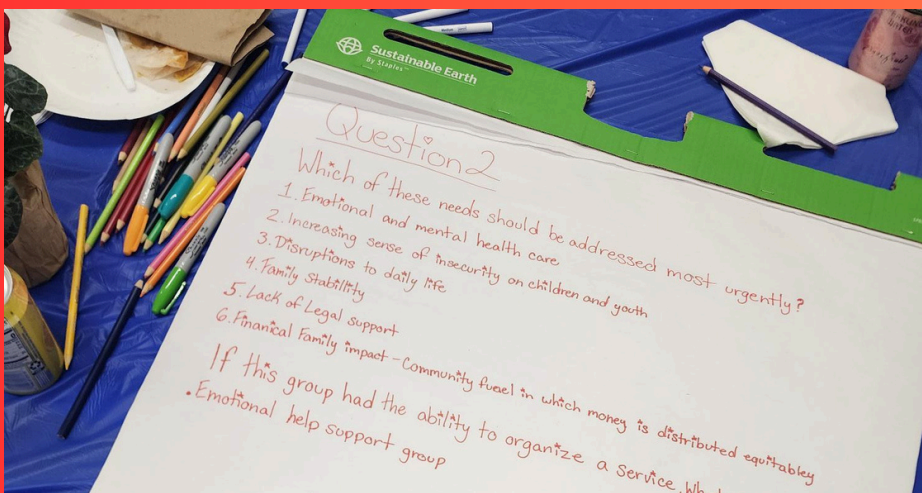 Sustainable Earth
By Staples
Question 2
Which of these needs should be addressed most urgently?
1. Emotional and mental health care
2. Increasing sense of insecurity on children and youth
3. Disruptions to daily life
4. Family Stabillity
5. Lack of Legal support
6. Finanical Family impact - Community fuael in which money is distributed equitabley
If this group had the ability to organize a Service.
• Emotional help support group